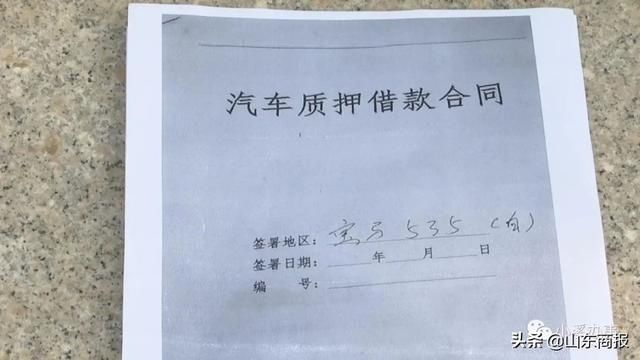 汽车质押借款合同
签署地区：宝马535（白）
签署日期：____年____月____日
编　　号：
小溪办事
头条 @山东商报